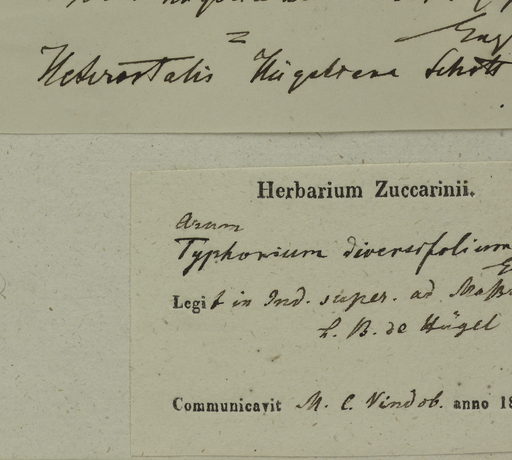 =
Heterostalis Hügeliana Schott
Herbarium Zuccarinii.
Arum
Typhonium diversifolium
Legit in Ind. super. ad
L. B. de Hügel
Communicavit M. C. Vindob. anno 18